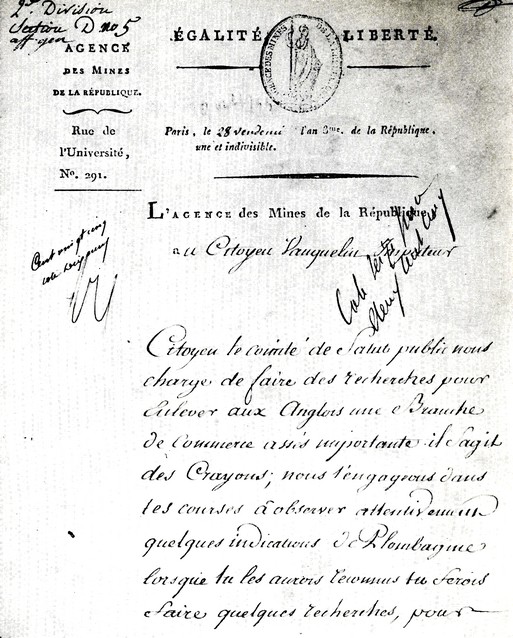 2e. Division
Section D no 5
AGENCE
DES MINES
DE LA RÉPUBLIQUE.
Rue de
l'Université,
No. 291.
ÉGALITÉ LIBERTÉ.
AGENCE DES MINES DE LA
Paris, le 28 Vendemi l'an 3me. de la République,
une et indivisible.
L'AGENCE des Mines de la République
au Citoyen Vauquelin Inspecteur
Cent vingt cinq
Citoyen le comité de Salut public nous
charge de faire des recherches pour
Enlever aux Anglois une Branche
de Commerce assés importante il s'agit
des Crayons; nous t'engageons dans
tes courses à observer attentivement
quelques indications de Plombagine
lorsque tu les aurois reconnus tu ferois
faire quelques recherches, pour